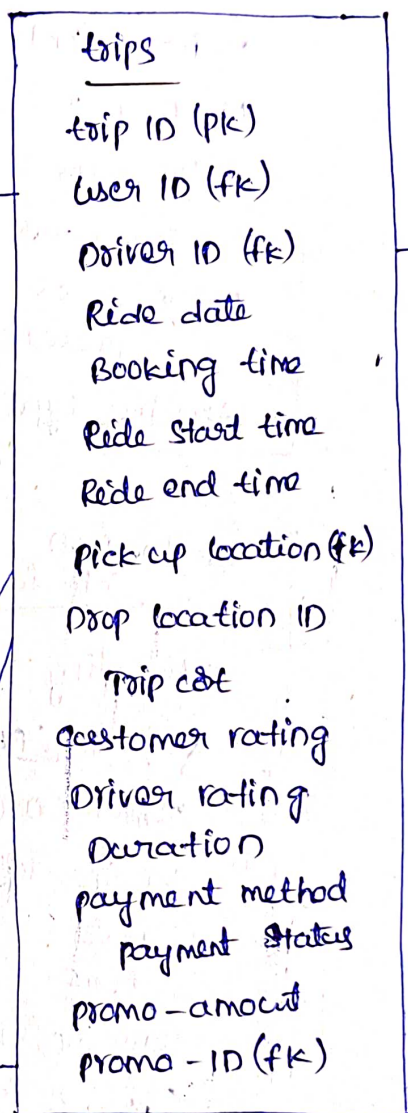 trips
trip ID (PK)
User ID (fk)
Driver ID (fk)
Ride date
Booking time
Ride Start time
Ride end time
Pick up location (fk)
Drop location ID
Trip cost
customer rating
Driver rating
Duration
payment method
payment Status
promo-amout
promo-ID (fk)